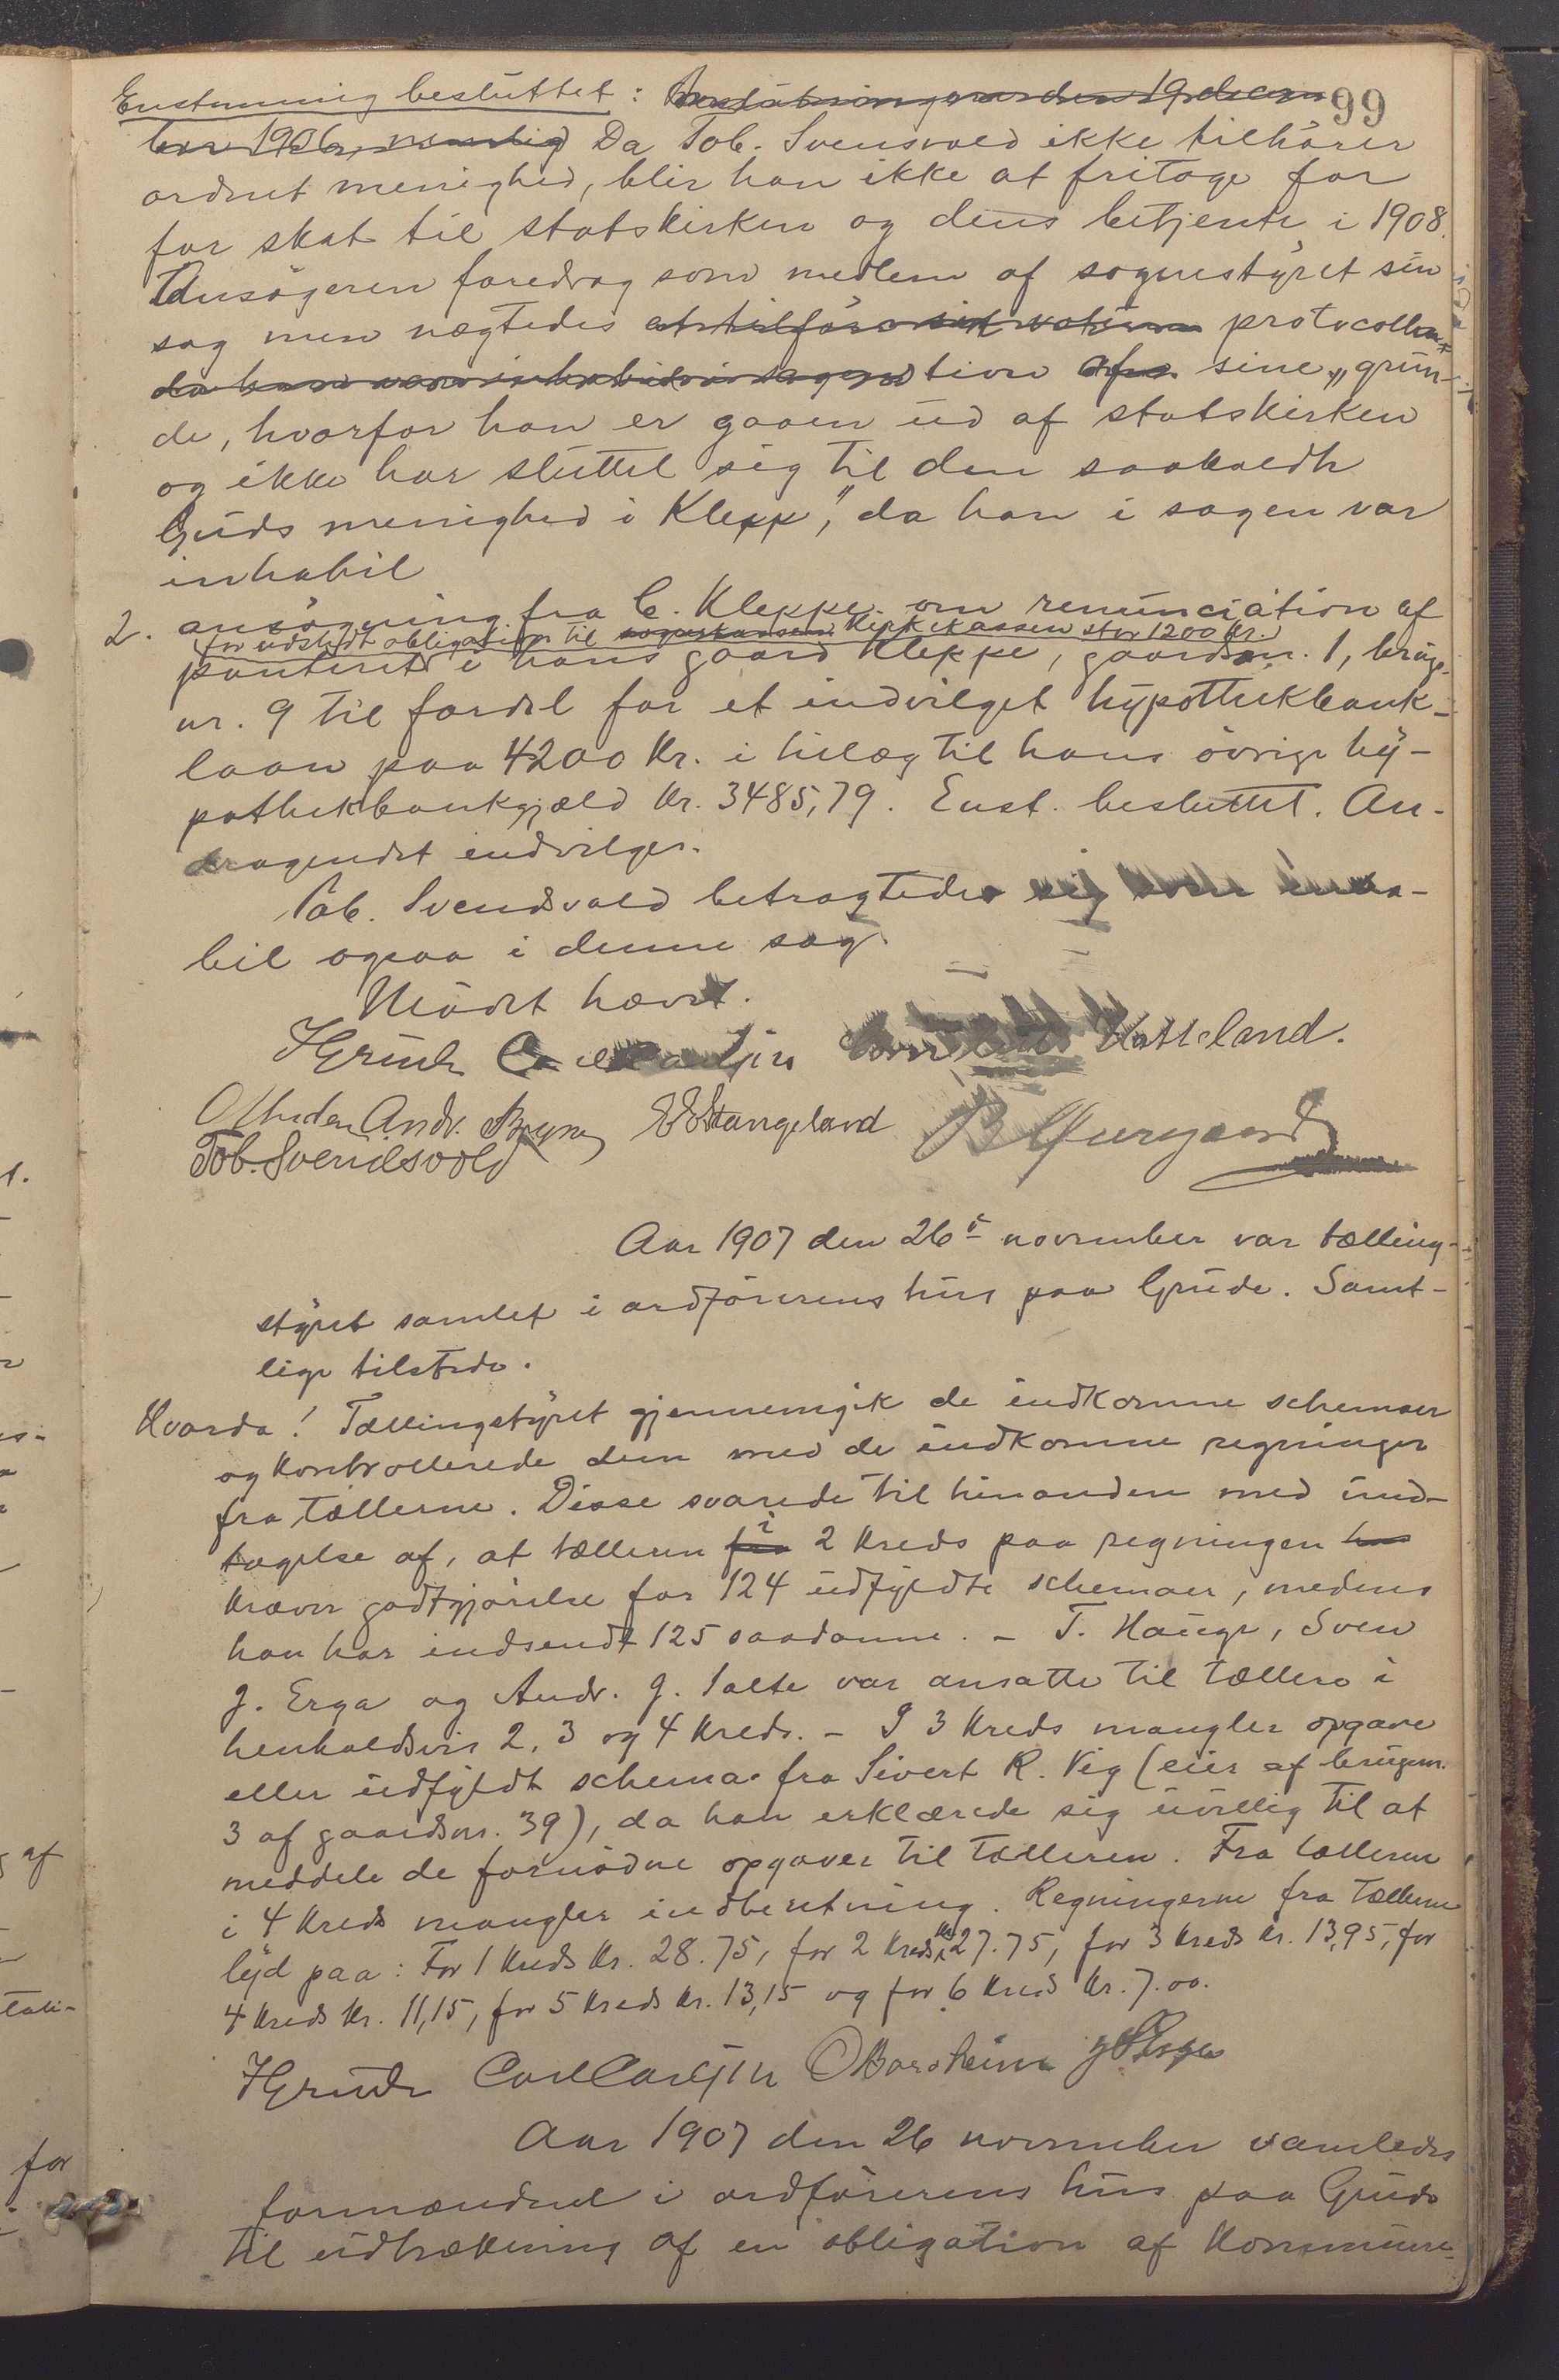 99
Enstemmig besluttet: Beslutning av den 19 decem
ber 1906, nemlig Da Tob. Svensvold ikke tilhører
ordnet menighed, blir han ikke at fritage for
for skat til statskirken og dens betjente i 1908.
Ansøgeren foredrog som medlem af sognestyret sin
sag men nægtedes at tilføre sit votum protocolla-
da han var inhabil i sagen tion af sine „grun-
de, hvorfor han er gaaen ud af statskirken
og ikke har sluttet sig til den saakaldte
Guds menighed i Klepp", da han i sagen var
inhabil
2. ansøgning fra C. Kleppe om renunciation af
for udstedt obligation til sognekassen Kirkekassen stor 1200 Kr.
panteret i hans gaard Kleppe, gaardsnr. 1, brugs-
nr. 9 til fordel for et indvilget hypothekbank-
laan paa 4200 Kr. i tillæg til hans øvrige hy-
pothekbankgjæld Kr. 3485,79. Enst. besluttet. An-
dragendet indvilges.
Tob. Svendsvold betragtedes sig som inha-
bil ogsaa i denne sag.
Mødet hævet.
HGrude Carl Carlsen Hatteland.
Andr. Bryne EEStangeland
Tob. Svendsvold
Aar 1907 den 26de november var tælling-
styret samlet i ordførerens hus paa Grude. Samt-
lige tilstede.
Hvorda! Tællingstyret gjennemgik de indkomne schemaer
og kontrollerede dem med de indkomne regninger
fra tællerne. Disse svarede til hinanden med und-
tagelse af, at tælleren fra i 2 Kreds paa regningen har
kræver godtgjørelse for 124 udfyldte schemaer, medens
han har indsendt 125 saadanne. – T. Hauge, Sven
J. Erga og Andr. J. Salte var ansatte til tællere i
henholdsvis 2, 3 og 4 Kreds. – I 3 Kreds mangler opgave
eller udfyldt schema fra Sivert R. Vig (eier af brugsnr.
3 af gaardsnr. 39), da han erklærede sig uvillig til at
meddele de fornødne opgaver til tælleren. Fra tælleren
i 4 Kreds mangler indberetning. Regningerne fra tællerne
lyd paa: For 1 Kreds Kr. 28.75, for 2 Kreds Kr. 27.75, for 3 Kreds Kr. 13,95, for
4 Kreds Kr. 11,15, for 5 Kreds Kr. 13,15 og for 6 Kreds Kr. 7.00.
HGrude Carl Carlsen OBorsheim
Aar 1907 den 26 november samledes
formændene i ordførerens hus paa Grude
til udtrækning af en obligation af Kommune-